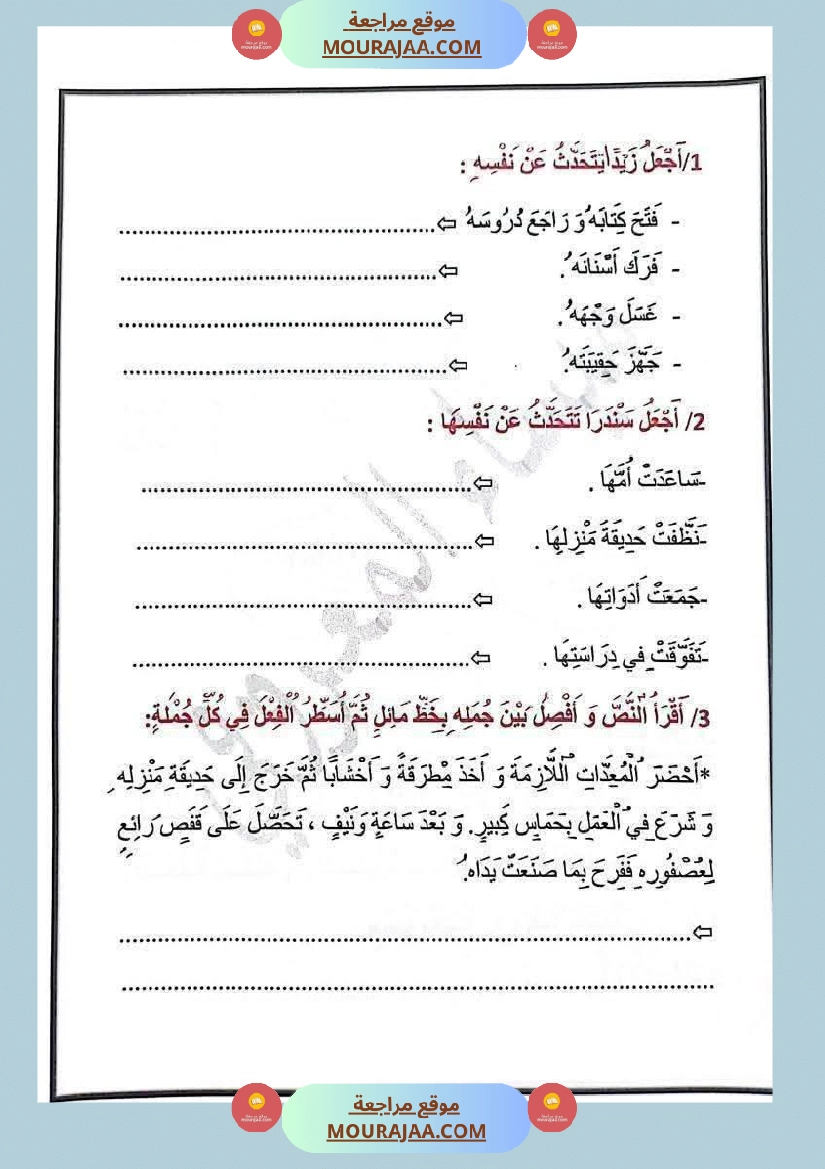 موقع مراجعة
MOURAJAA.COM
1/أَجْعَلُ زَيْدًا يَتَحَدَّثُ عَنْ نَفْسِهِ :
- فَتَحَ كِتَابَهُ وَ رَاجَعَ دُرُوسَهُ ⇦..................................................
- فَرَكَ أَسْنَانَهُ. ⇦..................................................
- غَسَلَ وَجْهَهُ. ⇦..................................................
- جَهَّزَ حَقِيبَتَهُ. ⇦..................................................
2/ أَجْعَلُ سَنْدَرَا تَتَحَدَّثُ عَنْ نَفْسِهَا :
-سَاعَدَتْ أُمَّهَا . ⇦..................................................
-نَظَّفَتْ حَدِيقَةَ مَنْزِلِهَا . ⇦..................................................
-جَمَعَتْ أَدَوَاتِهَا . ⇦..................................................
-تَفَوَّقَتْ فِي دِرَاسَتِهَا . ⇦..................................................
3/ أَقْرَأُ ٱلنَّصَّ وَ أَفْصِلُ بَيْنَ جُمَلِهِ بِخَطٍّ مَائِلٍ ثُمَّ أُسَطِّرُ ٱلْفِعْلَ فِي كُلِّ جُمْلَةٍ:
*أَحْضَرَ ٱلْمُعِدَّاتِ ٱللَّازِمَةَ وَ أَخَذَ مِطْرَقَةً وَ أَخْشَابًا ثُمَّ خَرَجَ إِلَى حَدِيقَةِ مَنْزِلِهِ
وَ شَرَعَ فِي ٱلْعَمَلِ بِحَمَاسٍ كَبِيرٍ. وَ بَعْدَ سَاعَةٍ وَنَيْفٍ ، تَحَصَّلَ عَلَى قَفَصٍ رَائِعٍ
لِعُصْفُورِهِ فَفَرِحَ بِمَا صَنَعَتْ يَدَاهُ.
⇦..................................................
..................................................
موقع مراجعة
MOURAJAA.COM